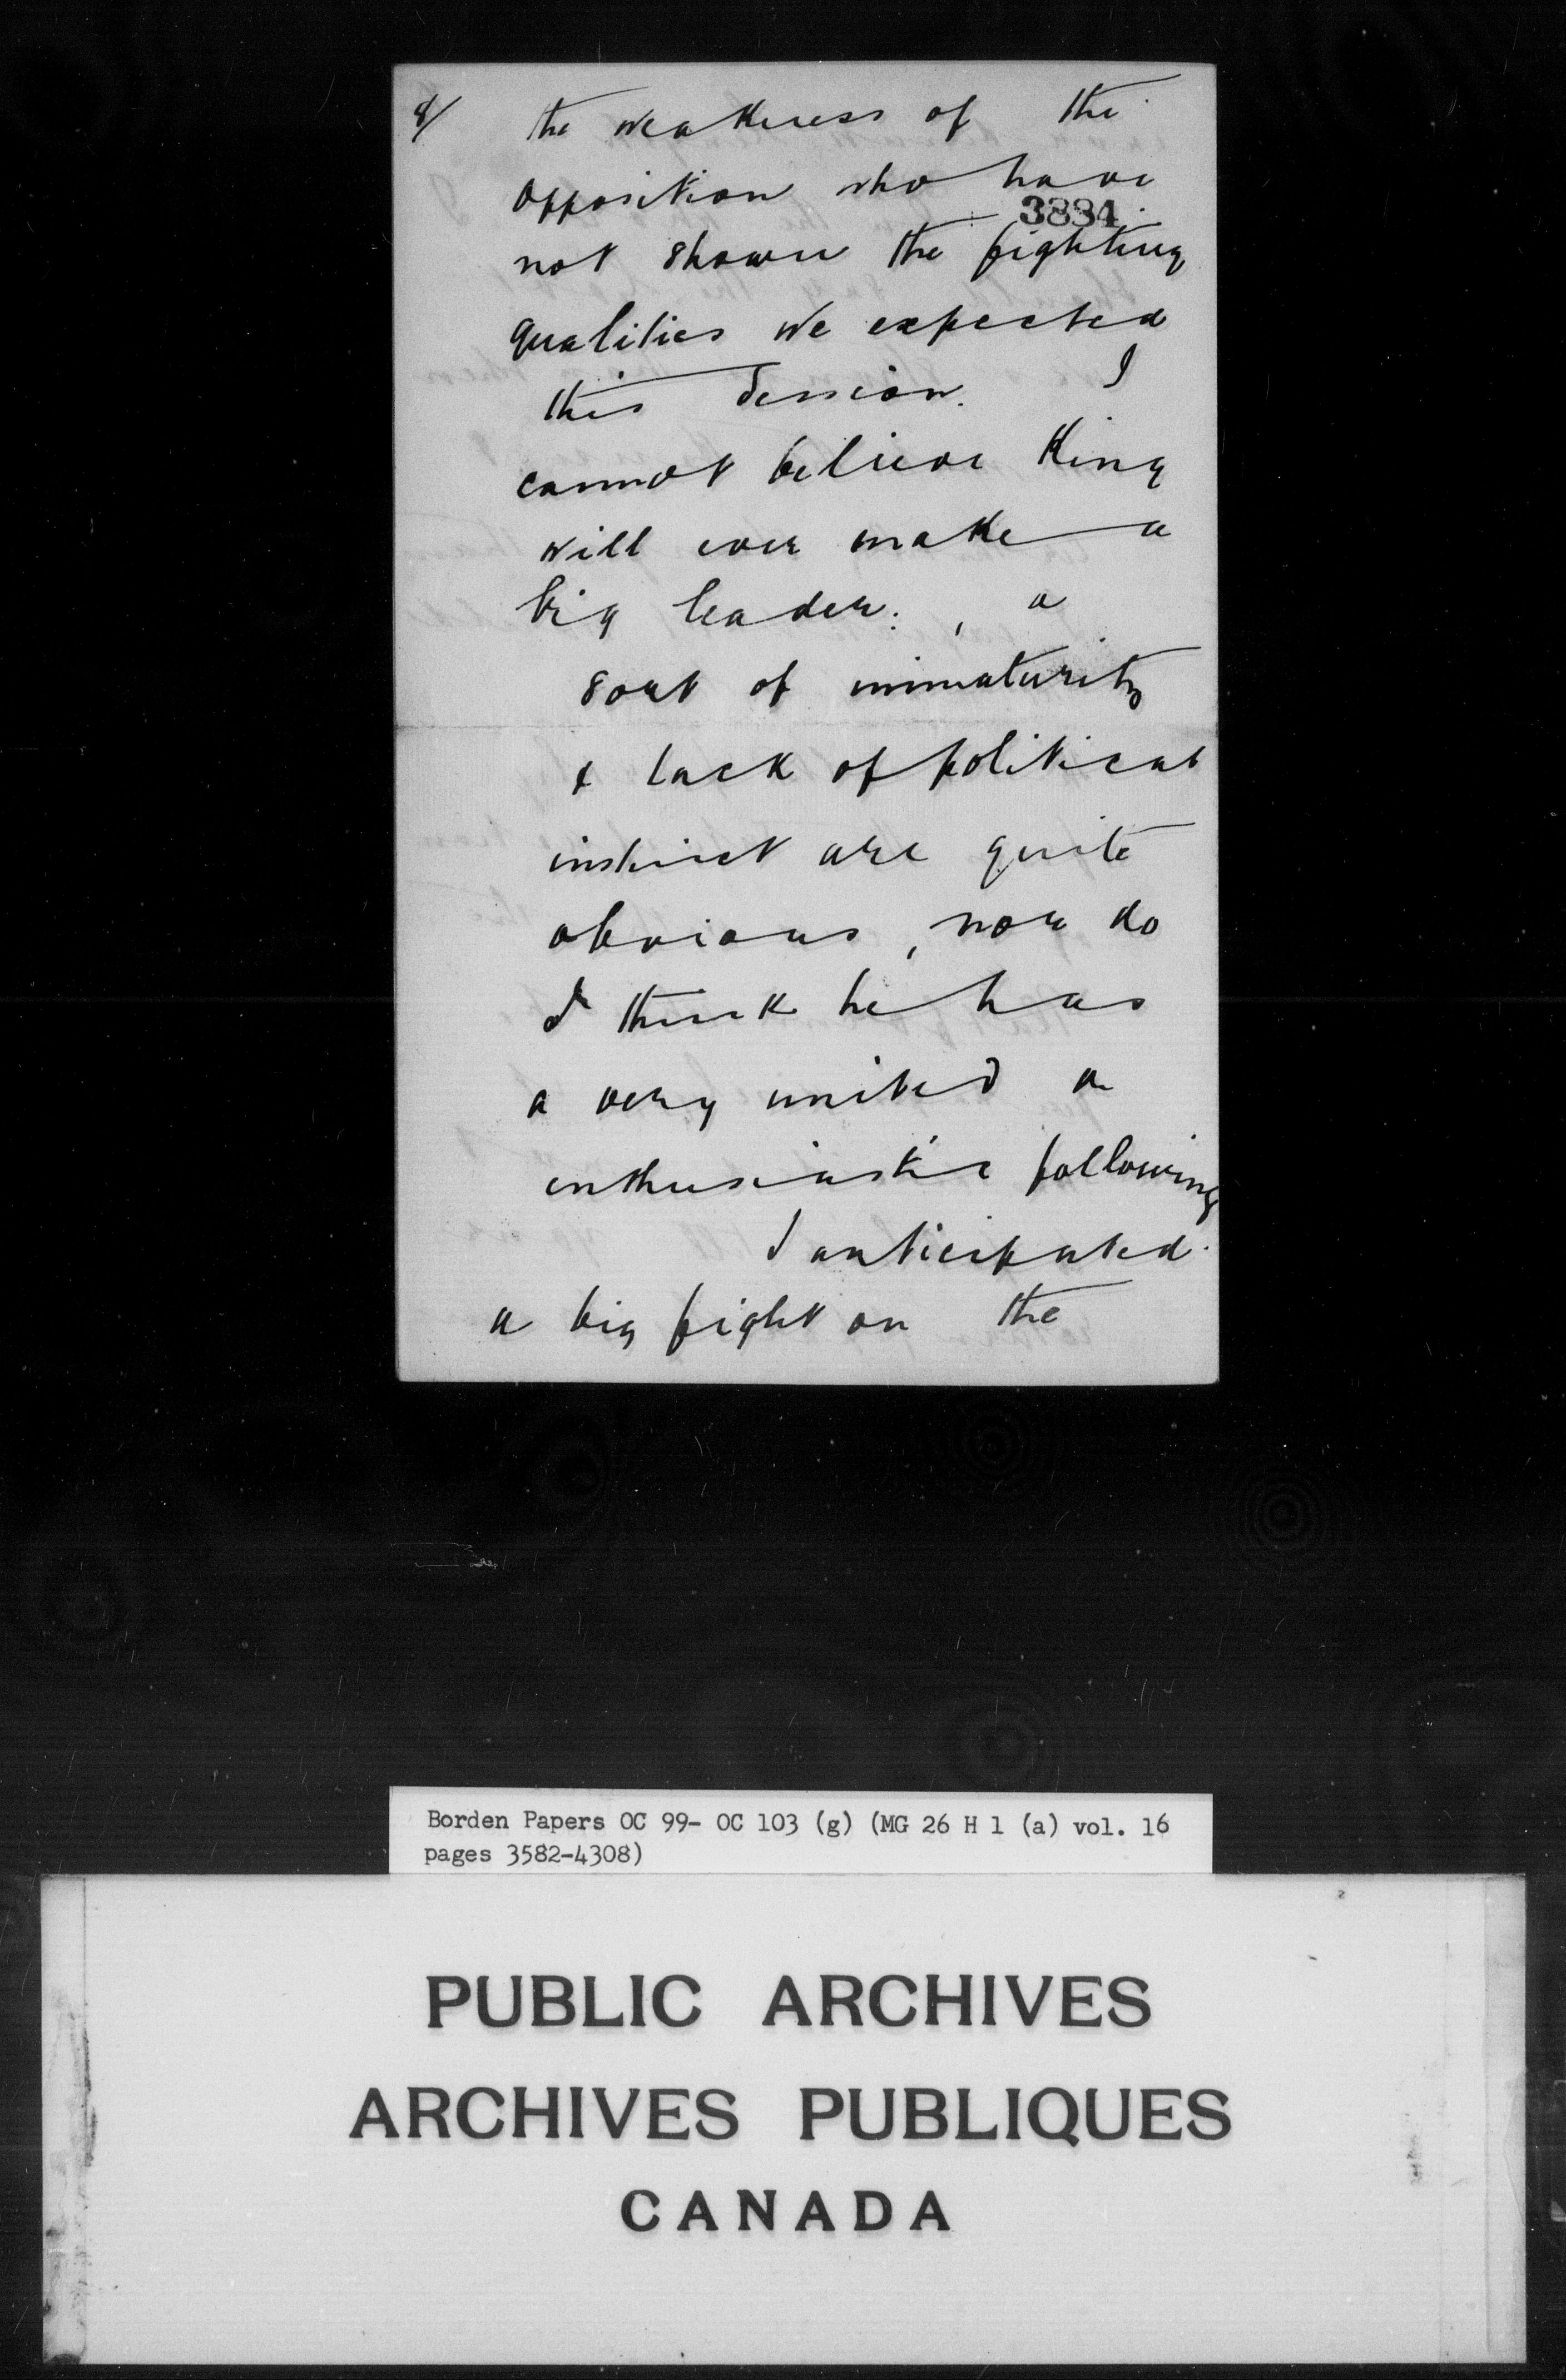 8/ the weakness of the
opposition who have
3884
not shown the fighting
qualities we expected
this session. I
cannot believe King
will ever make a
big leader: , a
sort of immaturity
& lack of political
instinct are quite
obvious, nor do
I think he has
a very united or
enthusiastic following
I anticipated
a big fight on the
Borden Papers OC 99- OC 103 (g) (MG 26 H 1 (a) vol. 16
pages 3582-4308)
PUBLIC ARCHIVES
ARCHIVES PUBLIQUES
CANADA